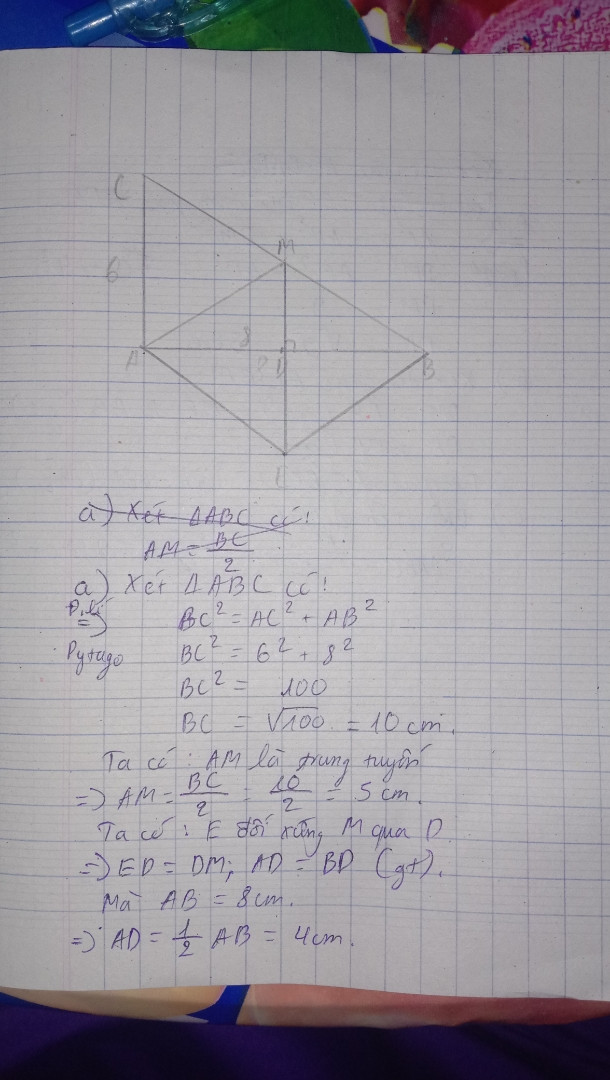 C
M
6
8
A
D
B
E
a) Xét ΔABC có:
AM = BC/2
a) Xét ΔABC có:
Đ.lí => Pytago BC² = AC² + AB²
BC² = 6² + 8²
BC² = 100
BC = √100 = 10 cm.
Ta có : AM là trung tuyến
=> AM = BC/2 = 10/2 = 5 cm.
Ta có : E đối xứng M qua D
=> ED = DM; AD = BD (gt).
Mà AB = 8 cm.
=> AD = 1/2 AB = 4 cm.